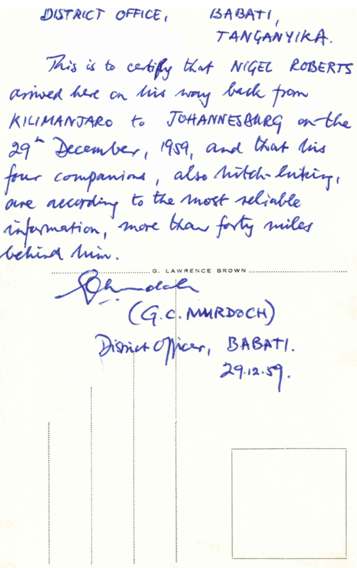 DISTRICT OFFICE, BABATI,
TANGANYIKA.
This is to certify that NIGEL ROBERTS
arrived here on his way back from
KILIMANJARO to JOHANNESBURG on the
29th December, 1959, and that his
four companions, also hitch-hiking,
are according to the most reliable
information, more than forty miles
behind him.
G. LAWRENCE BROWN
(G.C. MURDOCH)
District Officer, BABATI.
29.12.59.